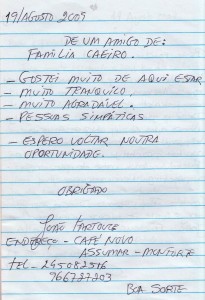 19/AGOSTO 2009
DE UM AMIGO DE:
FAMILIA CAEIRO.
- GOSTEI MUITO DE AQUI ESTAR
- MUITO TRANQUILO.
- MUITO AGRADÁVEL.
- PESSOAS SIMPÁTICAS
- ESPERO VOLTAR NOUTRA
OPORTUNIDADE.
OBRIGADO
JOÃO
ENDEREÇO - CAFÉ NOVO
ASSUMAR - MONFORTE
TEL - 245082516
966727203
BOA SORTE